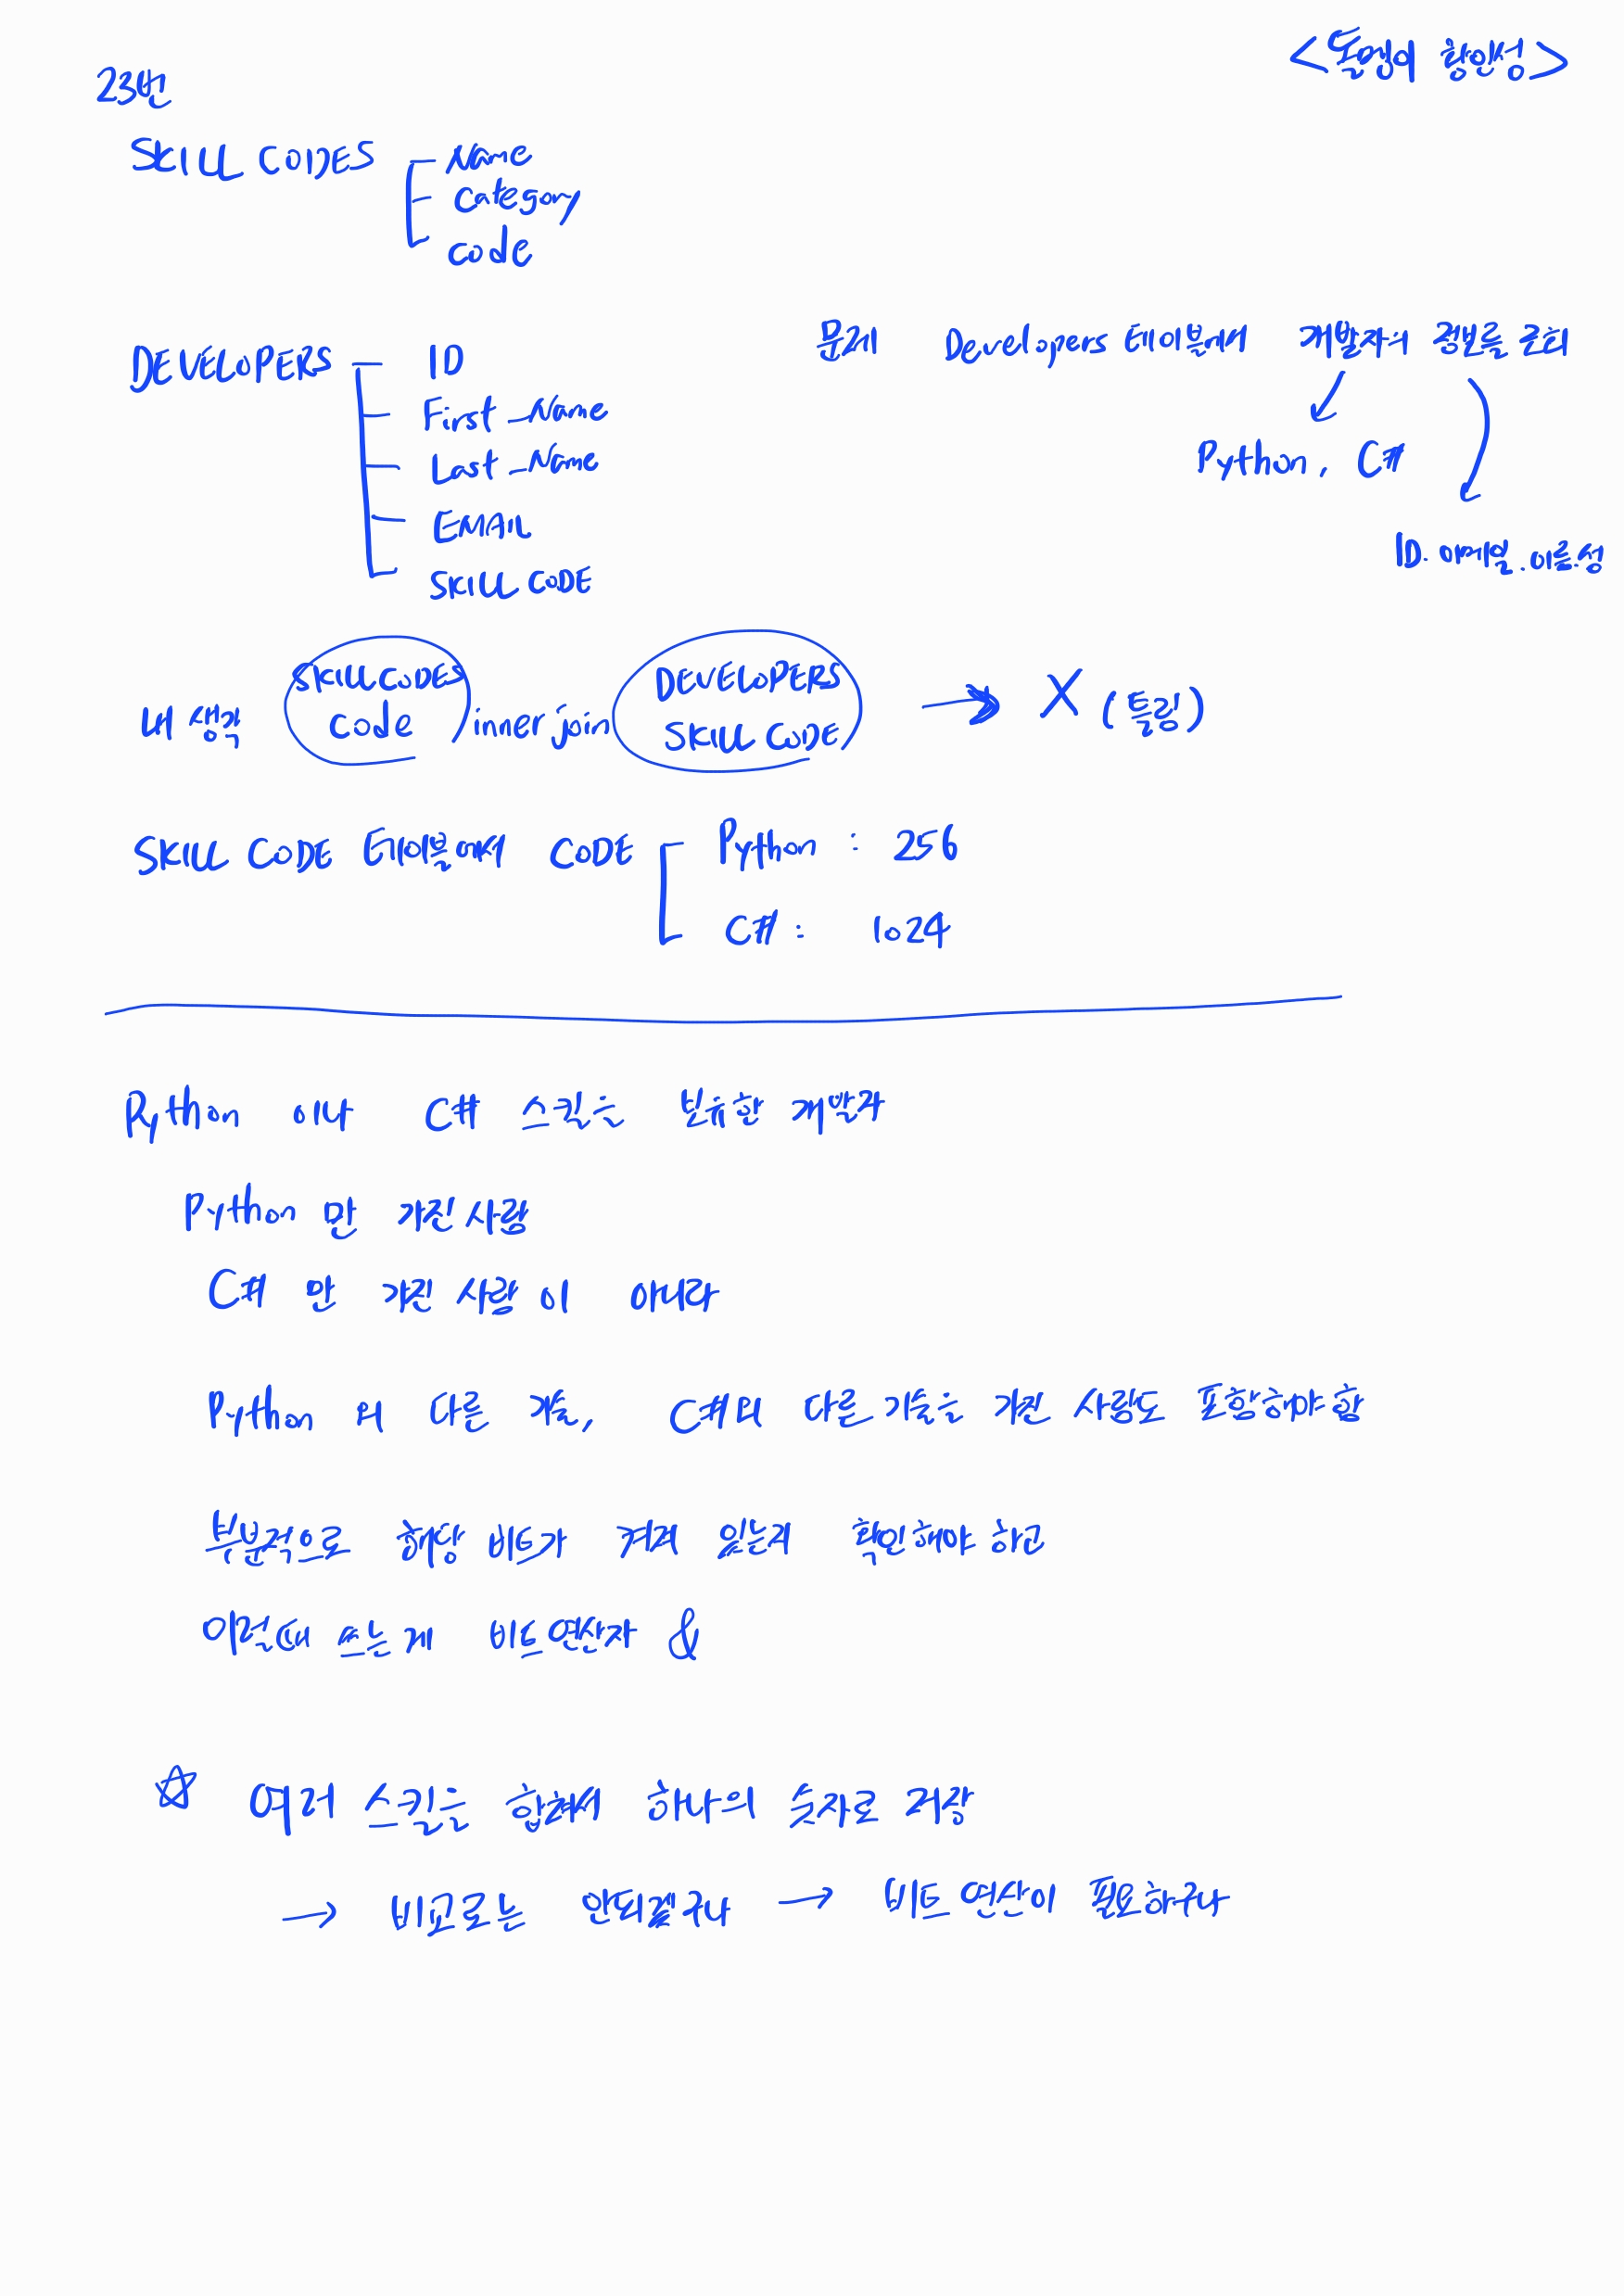 23번
<투명의 황인성>
SKILL CODES
Name
Category
code
DEVELOPERS
ID
First_Name
Last_Name
EMAIL
SKILL CODE
문제 Developers 테이블에서 개발자의 정보를 조회
Python, C#
ID. 이메일.이름.성
내 생각 SKILLCODES code inner join DEVELOPERS SKILL CODE → X (틀림)
SKILL CODE 테이블에서 CODE
Python : 256
C# : 1024
Python 이나 C# 스킬을 보유한 개발자
Python 만 가진 사람
C# 만 가진 사람이 아니라
Python 외 다른 기술, C#외 다른 기술을 가진 사람도 포함해야함
부분적으로 해당 비트가 켜져 있는지 확인해야 하고
이럴때 쓰는게 비트연산자 &
☆ 여러 스킬을 합쳐서 하나의 숫자로 저장
→ 비교로는 안되겠구나 → 비트 연산이 필요하구나